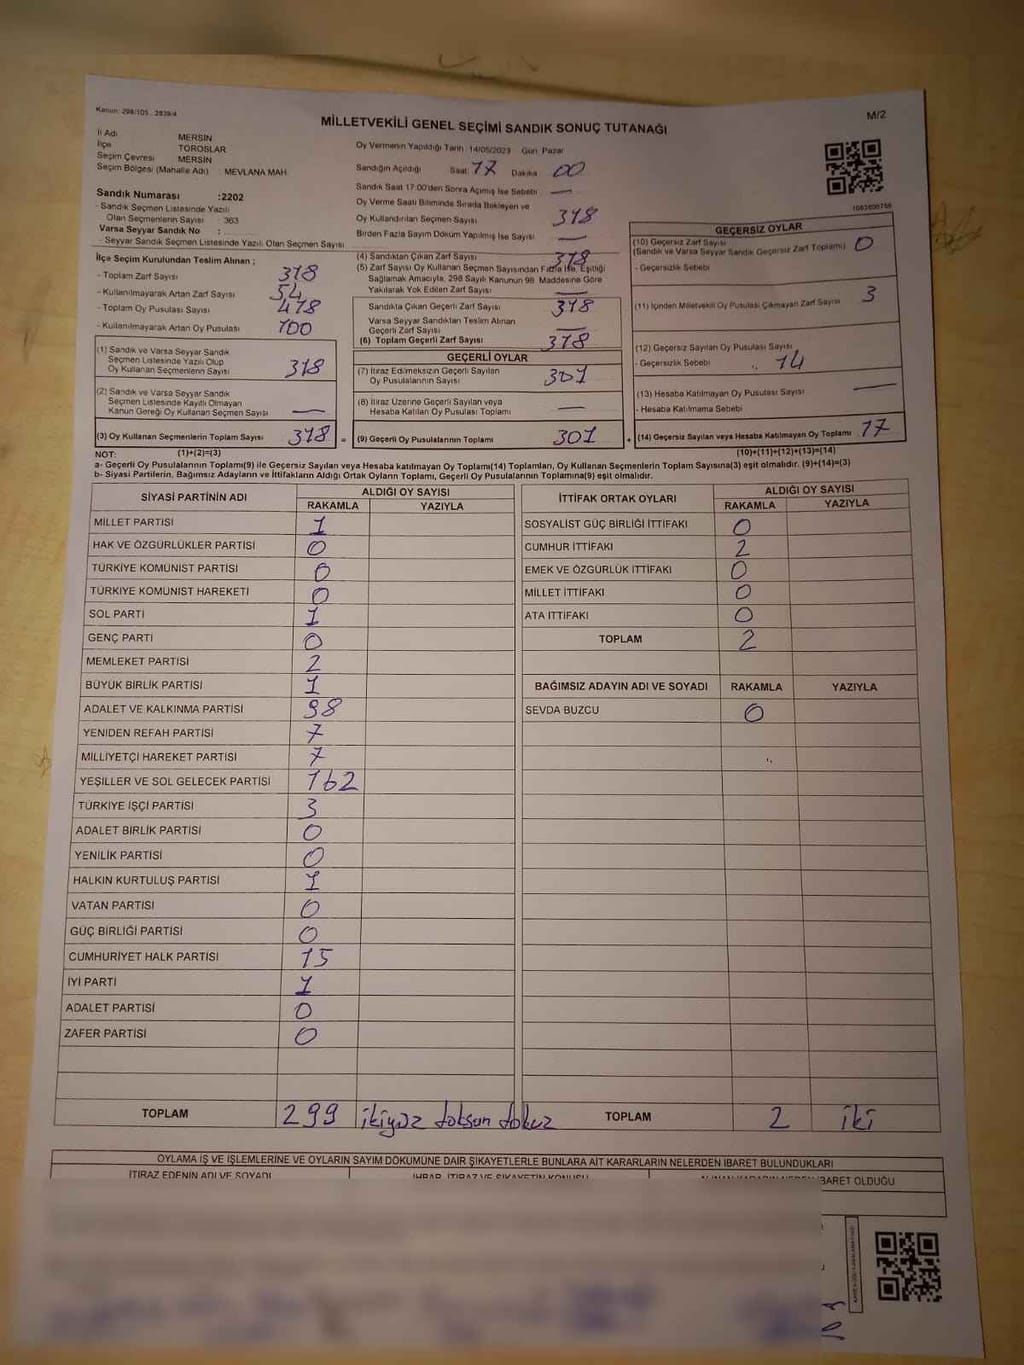 Kanun: 298/105 . 2839/4
M/2
MİLLETVEKİLİ GENEL SEÇİMİ SANDIK SONUÇ TUTANAĞI
İl Adı MERSİN
İlçe TOROSLAR
Seçim Çevresi MERSİN
Seçim Bölgesi (Mahalle Adı) : MEVLANA MAH
Oy Vermenin Yapıldığı Tarih 14/05/2023 Gün Pazar
Sandığın Açıldığı Saat 17 Dakika 00
Sandık Saat 17:00'den Sonra Açılmış İse Sebebi —
Oy Verme Saati Bitiminde Sırada Bekleyen ve
Oy Kullandırılan Seçmen Sayısı 318
Birden Fazla Sayım Döküm Yapılmış İse Sayısı —
Sandık Numarası :2202
- Sandık Seçmen Listesinde Yazılı
Olan Seçmenlerin Sayısı : 363
Varsa Seyyar Sandık No :
- Seyyar Sandık Seçmen Listesinde Yazılı Olan Seçmen Sayısı
İlçe Seçim Kurulundan Teslim Alınan ;
- Toplam Zarf Sayısı 318
- Kullanılmayarak Artan Zarf Sayısı 54
- Toplam Oy Pusulası Sayısı 418
- Kullanılmayarak Artan Oy Pusulası 100
(1) Sandık ve Varsa Seyyar Sandık
Seçmen Listesinde Yazılı Olup
Oy Kullanan Seçmenlerin Sayısı 318
(2) Sandık ve Varsa Seyyar Sandık
Seçmen Listesinde Kayıtlı Olmayan
Kanun Gereği Oy Kullanan Seçmen Sayısı —
(3) Oy Kullanan Seçmenlerin Toplam Sayısı 318 =
(4) Sandıktan Çıkan Zarf Sayısı 318
(5) Zarf Sayısı Oy Kullanan Seçmen Sayısından Fazla İse, Eşitliği
Sağlamak Amacıyla, 298 Sayılı Kanunun 98. Maddesine Göre
Yakılarak Yok Edilen Zarf Sayısı —
Sandıkta Çıkan Geçerli Zarf Sayısı 318
Varsa Seyyar Sandıktan Teslim Alınan
Geçerli Zarf Sayısı —
(6) Toplam Geçerli Zarf Sayısı 318
GEÇERLİ OYLAR
(7) İtiraz Edilmeksizin Geçerli Sayılan
Oy Pusulalarının Sayısı 301
(8) İtiraz Üzerine Geçerli Sayılan veya
Hesaba Katılan Oy Pusulası Toplamı —
(9) Geçerli Oy Pusulalarının Toplamı 301 +
1083608768
GEÇERSİZ OYLAR
(10) Geçersiz Zarf Sayısı
(Sandık ve Varsa Seyyar Sandık Geçersiz Zarf Toplamı) 0
- Geçersizlik Sebebi
(11) İçinden Milletvekili Oy Pusulası Çıkmayan Zarf Sayısı 3
(12) Geçersiz Sayılan Oy Pusulası Sayısı
- Geçersizlik Sebebi 14
(13) Hesaba Katılmayan Oy Pusulası Sayısı —
- Hesaba Katılmama Sebebi
(14) Geçersiz Sayılan veya Hesaba Katılmayan Oy Toplamı 17
NOT: (1)+(2)=(3) (10)+(11)+(12)+(13)=(14)
a- Geçerli Oy Pusulalarının Toplamı(9) ile Geçersiz Sayılan veya Hesaba katılmayan Oy Toplamı(14) Toplamları, Oy Kullanan Seçmenlerin Toplam Sayısına(3) eşit olmalıdır. (9)+(14)=(3)
b- Siyasi Partilerin, Bağımsız Adayların ve İttifakların Aldığı Ortak Oyların Toplamı, Geçerli Oy Pusulalarının Toplamına(9) eşit olmalıdır.
SİYASİ PARTİNİN ADI ALDIĞI OY SAYISI
RAKAMLA YAZIYLA
MİLLET PARTİSİ 1
HAK VE ÖZGÜRLÜKLER PARTİSİ 0
TÜRKİYE KOMÜNİST PARTİSİ 0
TÜRKİYE KOMÜNİST HAREKETİ 0
SOL PARTİ 1
GENÇ PARTİ 0
MEMLEKET PARTİSİ 2
BÜYÜK BİRLİK PARTİSİ 1
ADALET VE KALKINMA PARTİSİ 98
YENİDEN REFAH PARTİSİ 7
MİLLİYETÇİ HAREKET PARTİSİ 7
YEŞİLLER VE SOL GELECEK PARTİSİ 162
TÜRKİYE İŞÇİ PARTİSİ 3
ADALET BİRLİK PARTİSİ 0
YENİLİK PARTİSİ 0
HALKIN KURTULUŞ PARTİSİ 1
VATAN PARTİSİ 0
GÜÇ BİRLİĞİ PARTİSİ 0
CUMHURİYET HALK PARTİSİ 15
İYİ PARTİ 1
ADALET PARTİSİ 0
ZAFER PARTİSİ 0
TOPLAM 299 ikiyüz doksan dokuz
İTTİFAK ORTAK OYLARI ALDIĞI OY SAYISI
RAKAMLA YAZIYLA
SOSYALİST GÜÇ BİRLİĞİ İTTİFAKI 0
CUMHUR İTTİFAKI 2
EMEK VE ÖZGÜRLÜK İTTİFAKI 0
MİLLET İTTİFAKI 0
ATA İTTİFAKI 0
TOPLAM 2
BAĞIMSIZ ADAYIN ADI VE SOYADI RAKAMLA YAZIYLA
SEVDA BUZCU 0
TOPLAM 2 iki
OYLAMA İŞ VE İŞLEMLERİNE VE OYLARIN SAYIM DÖKÜMÜNE DAİR ŞİKAYETLERLE BUNLARA AİT KARARLARIN NELERDEN İBARET BULUNDUKLARI
İTİRAZ EDENİN ADI VE SOYADI İHBAR, İTİRAZ VE ŞİKAYETİN KONUSU İBARET OLDUĞU